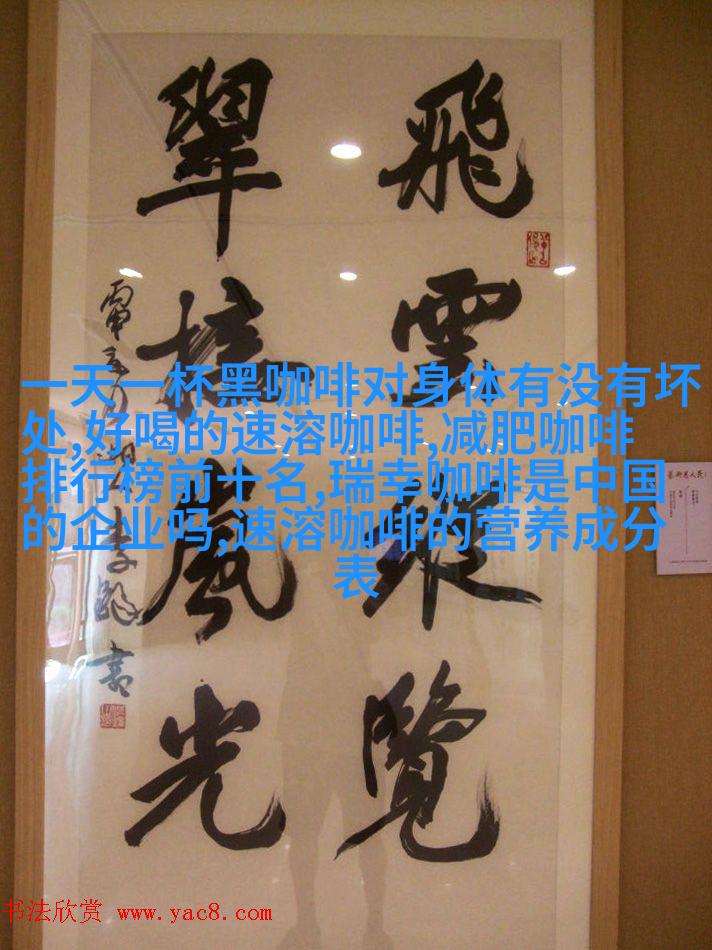 飛雪縱覽
翠嵐光
書
一天一杯黑咖啡对身体有没有坏
处,好喝的速溶咖啡,减肥咖啡
排行榜前十名,瑞幸咖啡是中国
的企业吗,速溶咖啡的营养成分
表
书法欣赏 www.yac8.com